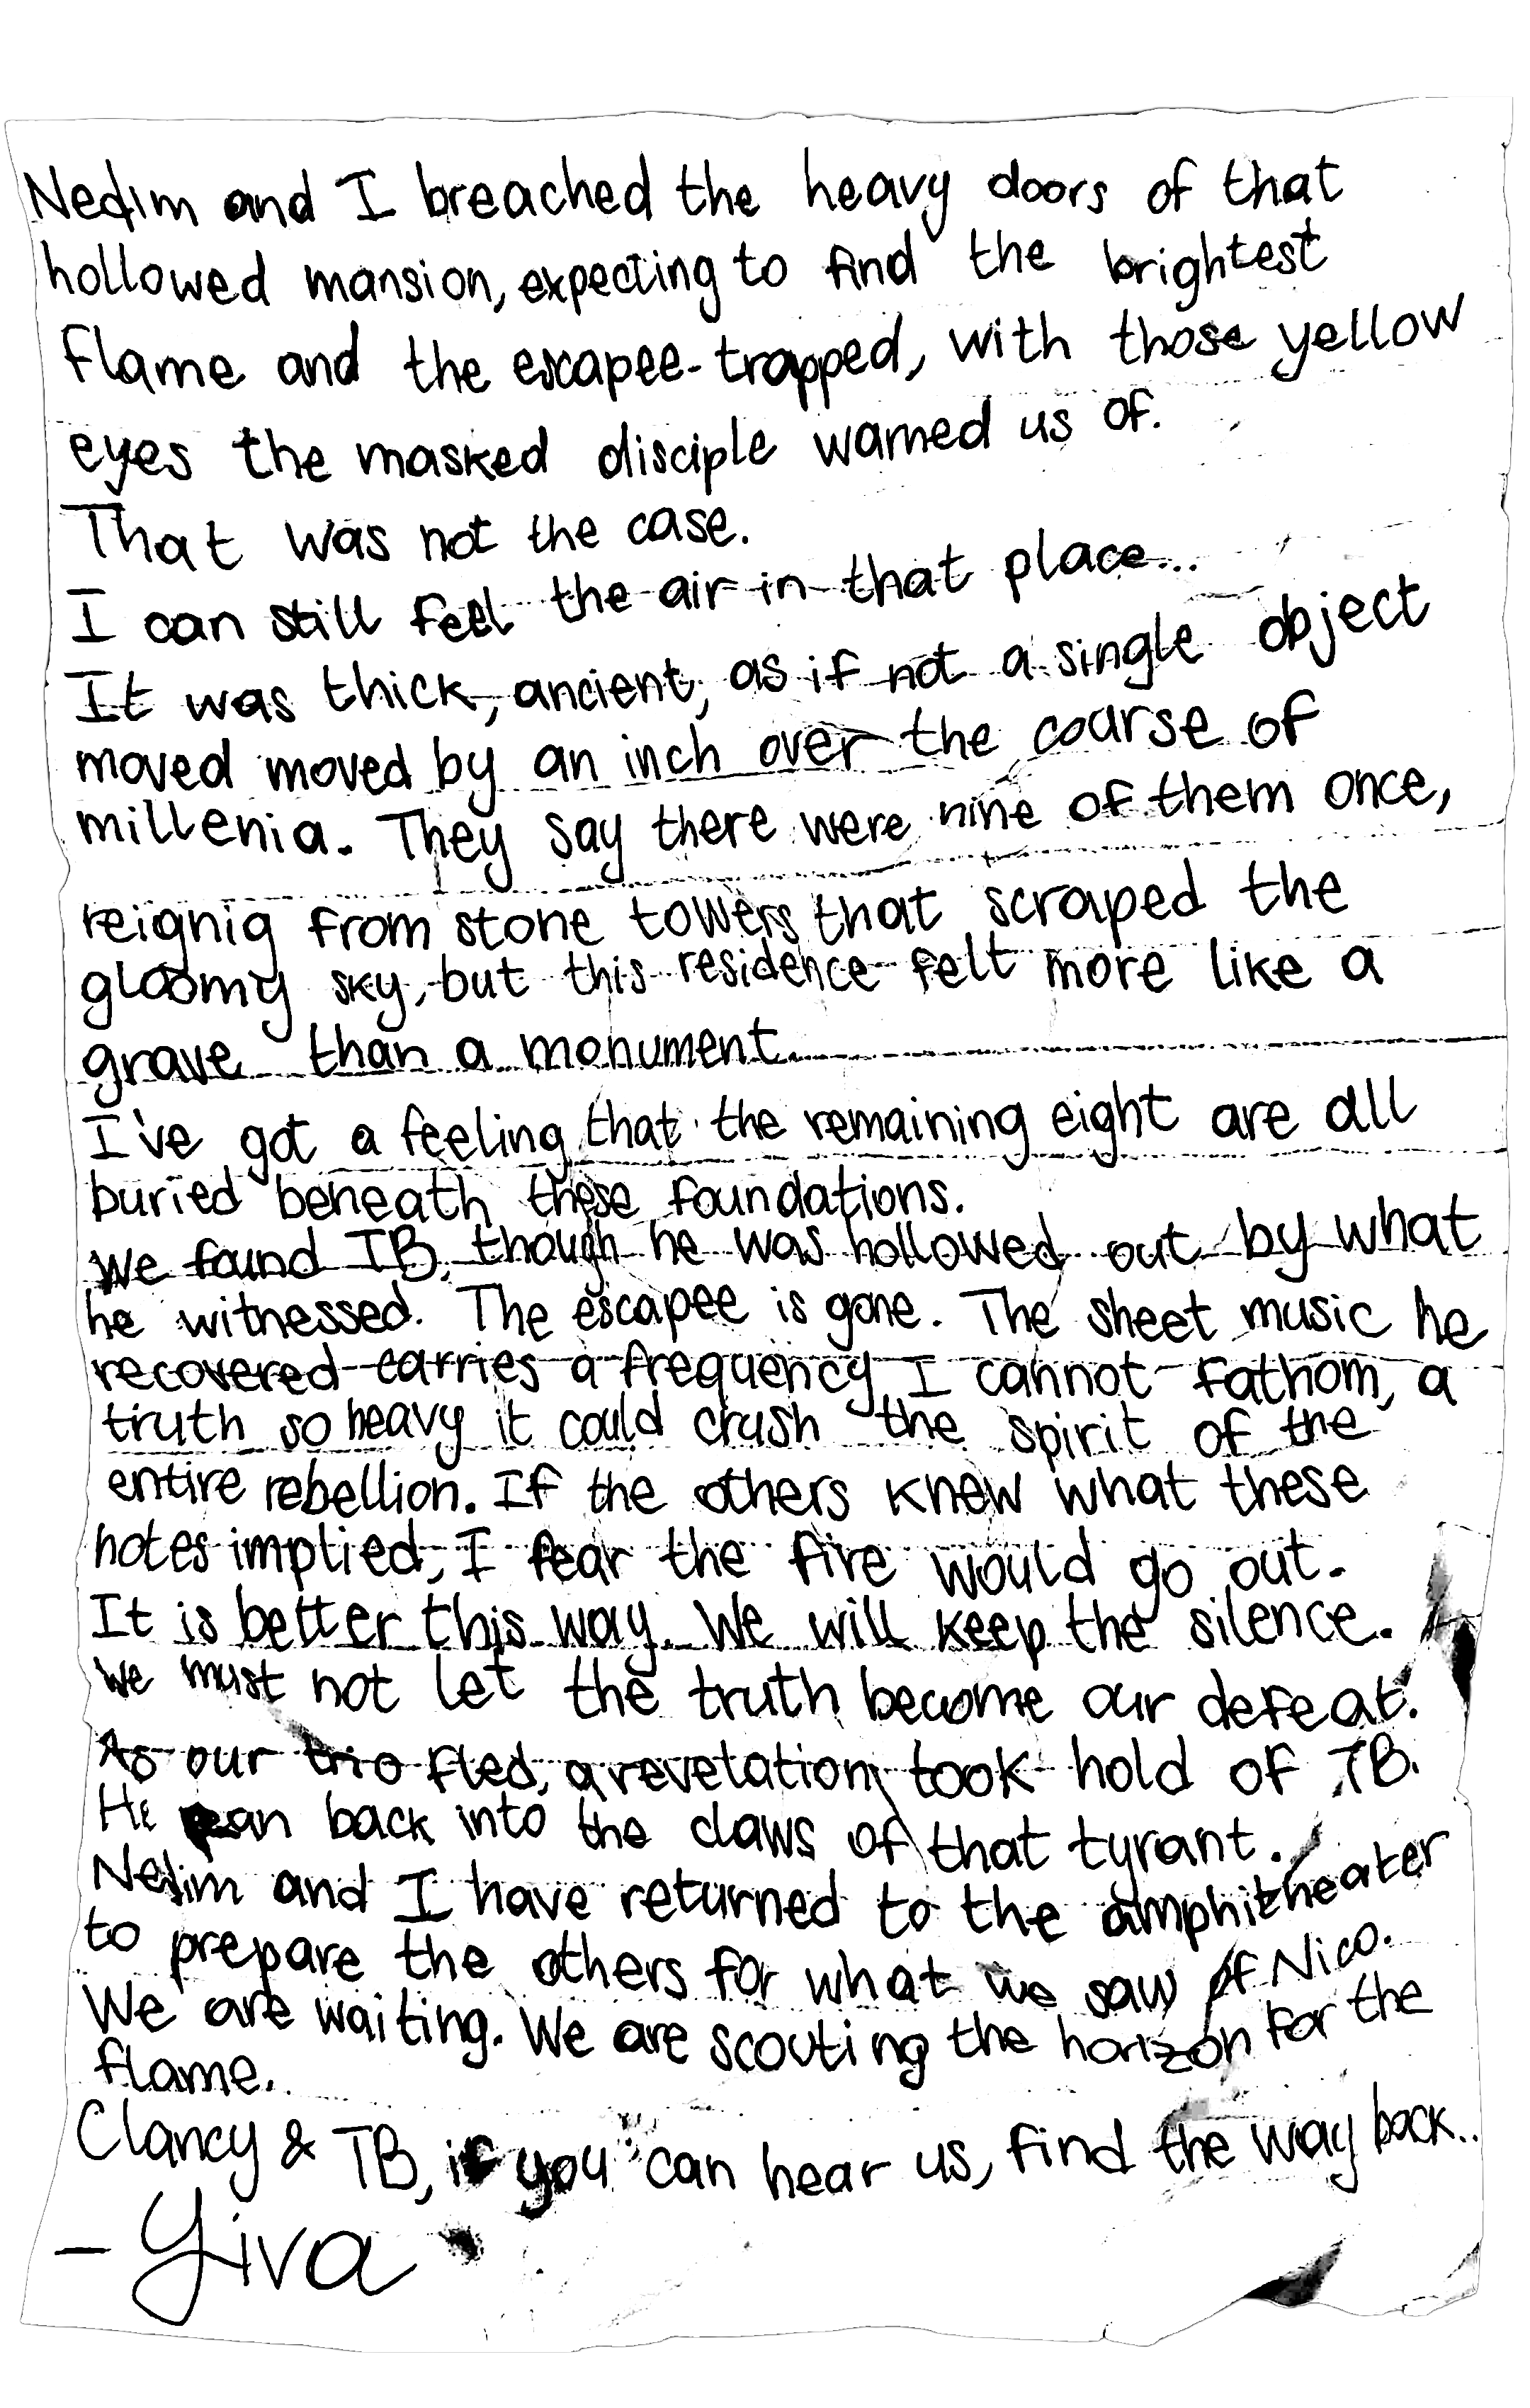 Nedim and I breached the heavy doors of that
hollowed mansion, expecting to find the brightest
flame and the escapee-trapped, with those yellow
eyes the masked disciple warned us of.
That was not the case.
I can still feel the air in that place...
It was thick, ancient, as if not a single object
moved moved by an inch over the course of
millenia. They say there were nine of them once,
reignig from stone towers that scraped the
gloomy sky, but this residence felt more like a
grave than a monument.
I've got a feeling that the remaining eight are all
buried beneath these foundations.
We found TB, though he was hollowed out by what
he witnessed. The escapee is gone. The sheet music he
recovered carries a frequency I cannot fathom, a
truth so heavy it could crush the spirit of the
entire rebellion. If the others knew what these
notes implied, I fear the fire would go out.
It is better this way. We will keep the silence.
We must not let the truth become our defeat.
As our trio fled, a revelation took hold of TB.
He ran back into the claws of that tyrant.
Nedim and I have returned to the amphitheater
to prepare the others for what we saw of Nico.
We are waiting. We are scouting the horizon for the
flame.
Clancy & TB, if you can hear us, find the way back..
- Yiva